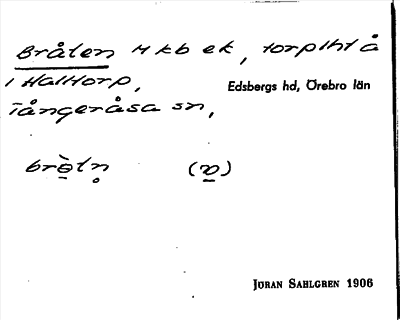 Bråten H kb ek, torplht å
i Halltorp,
Edsbergs hd, Örebro län
Tångeråsa sn,
brò̱tn̥ (ṉ)
JÖRAN SAHLGREN 1906